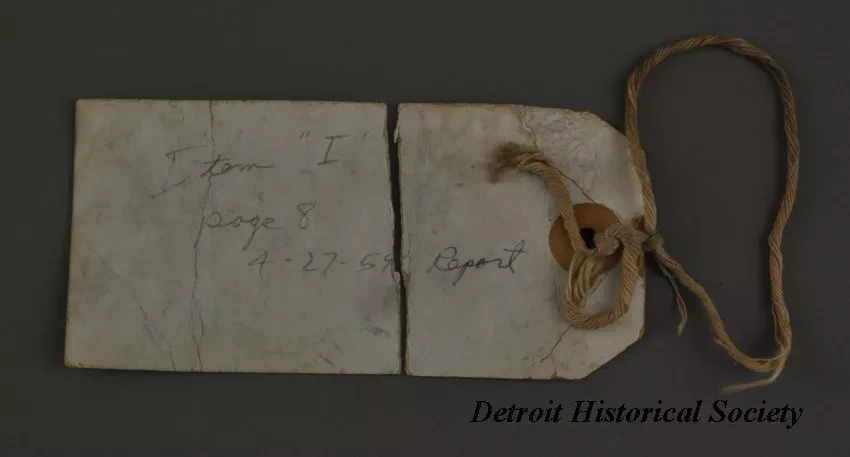 Item "I"
page 8
4-27-59 Report
Detroit Historical Society